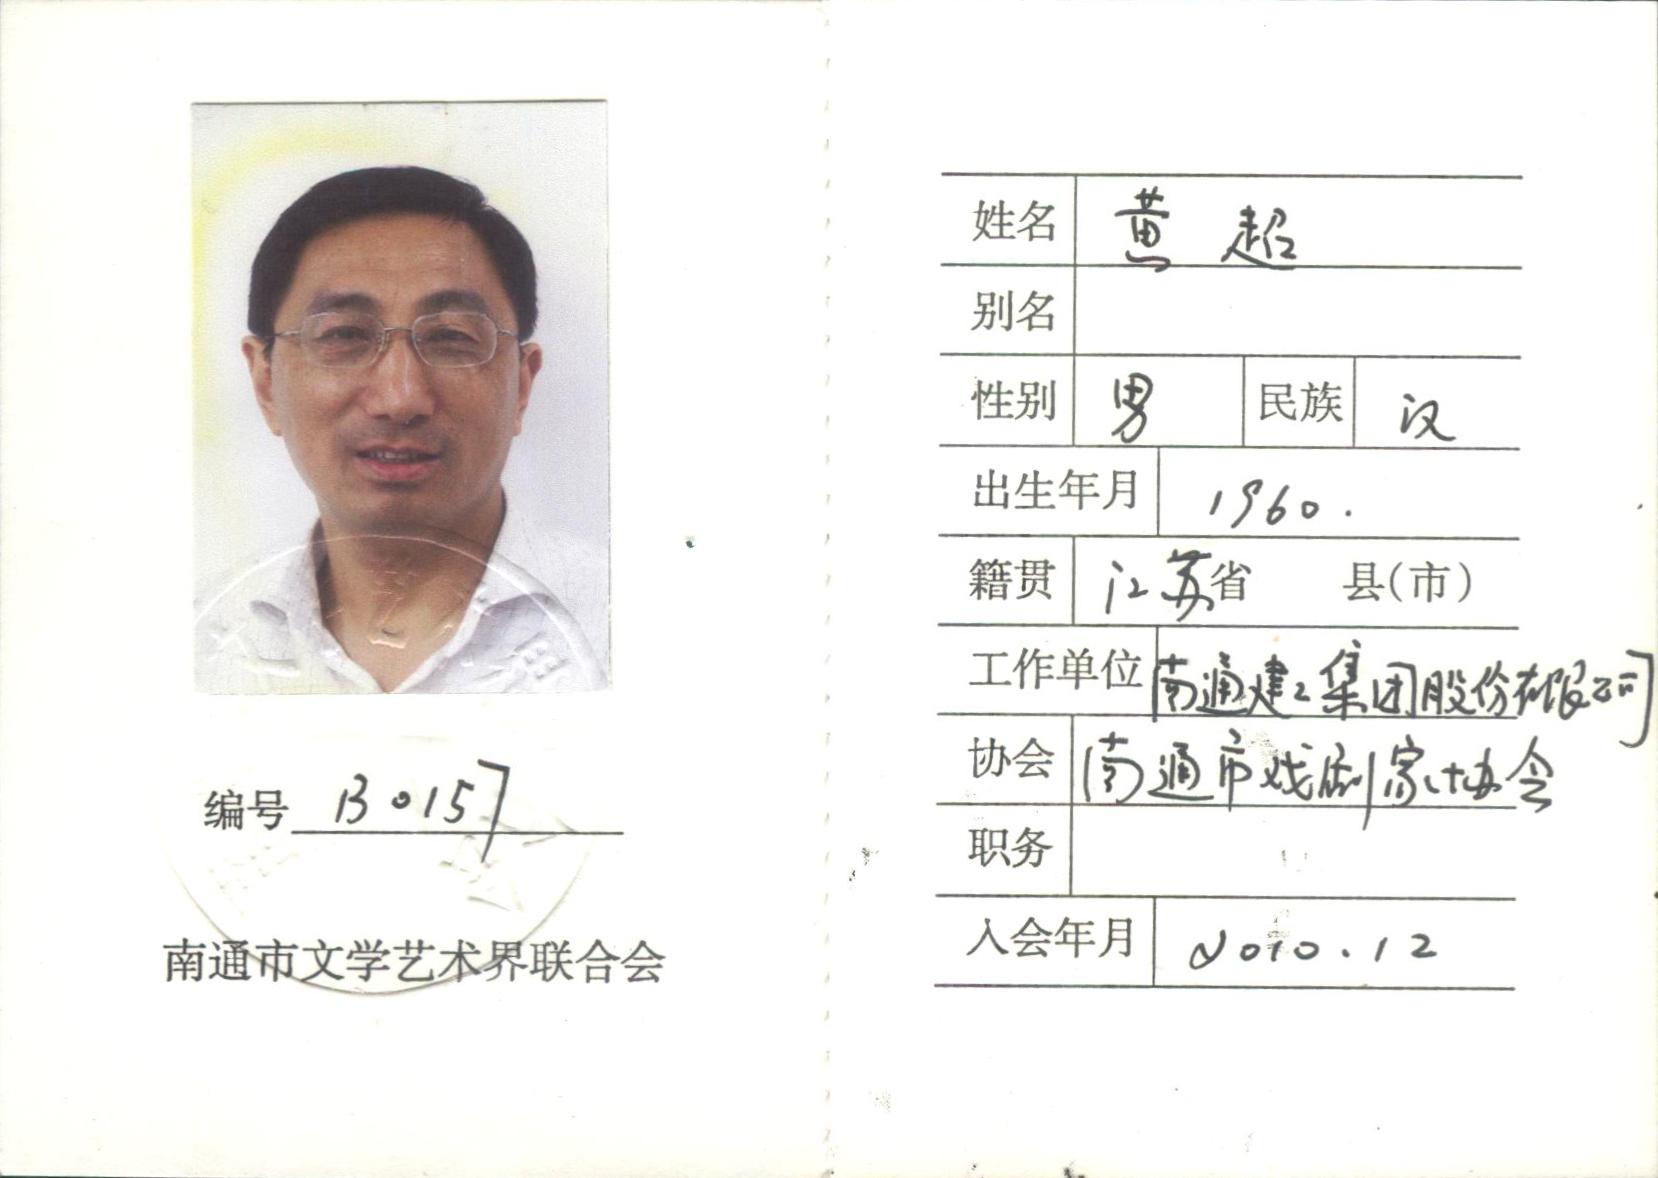 编号 B0157
南通市文学艺术界联合会
姓名 黄超
别名
性别 男 民族 汉
出生年月 1960.
籍贯 江苏省 县(市)
工作单位 南通建工集团股份有限公司
协会 南通市戏剧家协会
职务
入会年月 2010.12